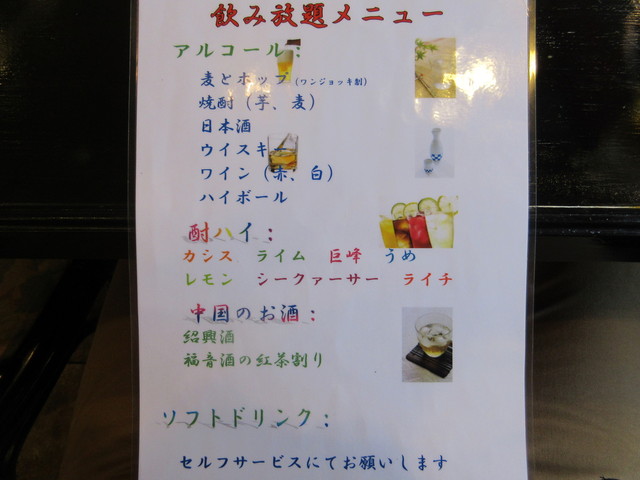 飲み放題メニュー
アルコール：
麦とホップ（ワンジョッキ制）
焼酎（芋、麦）
日本酒
ウイスキー
ワイン（赤、白）
ハイボール
酎ハイ：
カシス ライム 巨峰 うめ
レモン シークァーサー ライチ
中国のお酒：
紹興酒
福音酒の紅茶割り
ソフトドリンク：
セルフサービスにてお願いします